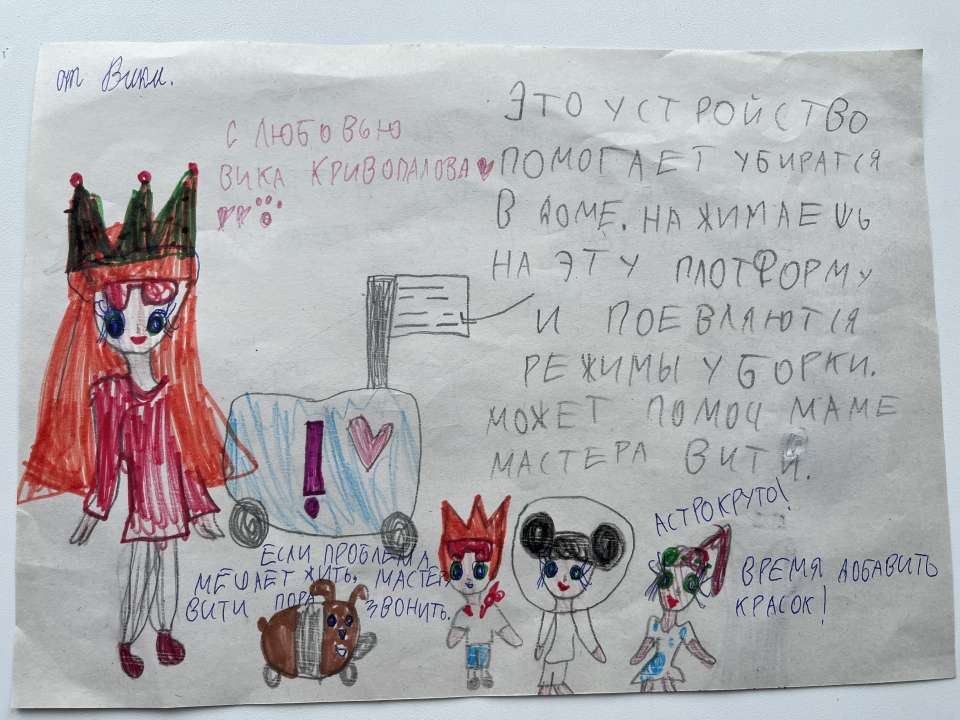 от Вики.
С ЛЮБОВЬЮ
ВИКА КРИВОПАЛОВА
ЭТО УСТРОЙСТВО
ПОМОГАЕТ УБИРАТСЯ
В ДОМЕ. НАЖИМАЕШЬ
НА ЭТУ ПЛОТФОРМУ
И ПОЕВЛЯЮТСЯ
РЕЖИМЫ УБОРКИ.
МОЖЕТ ПОМОЧ МАМЕ
МАСТЕРА ВИТИ.
!
ЕСЛИ ПРОБЛЕМА
МЕШАЕТ ЖИТЬ, МАСТЕР
ВИТИ ПОРА ЗВОНИТЬ.
АСТРОКРУТО!
ВРЕМЯ ДОБАВИТЬ
КРАСОК!